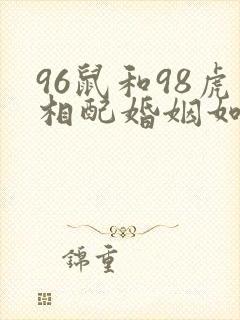 96鼠和98虎
相配婚姻如
錦重